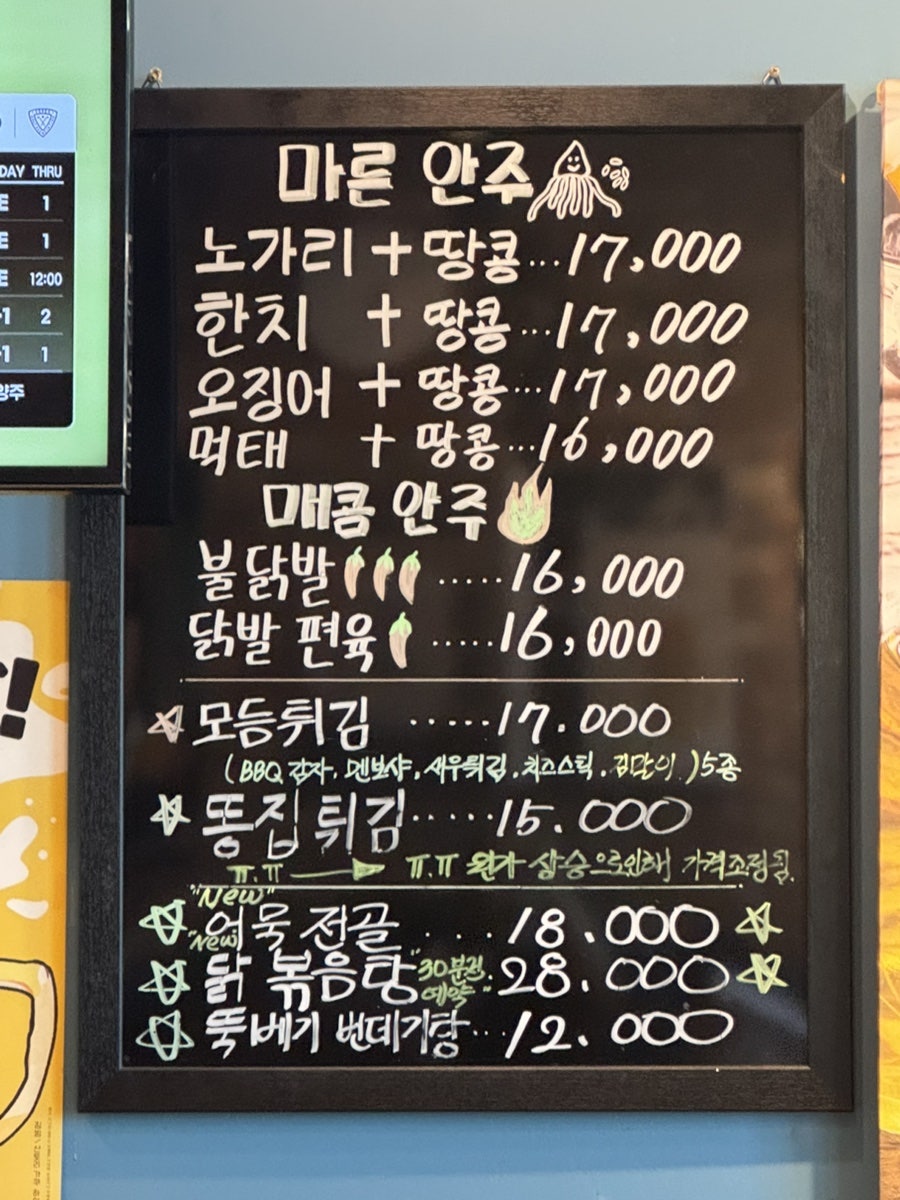 DAY THRU
E 1
E 1
E 12:00
-1 2
-1 1
양주
마른 안주
노가리 + 땅콩...17,000
한치 + 땅콩...17,000
오징어 + 땅콩...17,000
먹태 + 땅콩...16,000
매콤 안주
불닭발 .....16,000
닭발 편육 .....16,000
모듬튀김 .....17.000
(BBQ 감자, 멘보샤, 새우튀김, 치즈스틱, 김말이) 5종
똥집 튀김.....15.000
ㅠ.ㅠ → ㅠ.ㅠ 원가 상승으로인해 가격조정됨.
"New"
어묵 전골 ....18.000
"New"
닭 볶음탕 "30분전 예약" 28.000
뚝배기 번데기탕...12.000
!